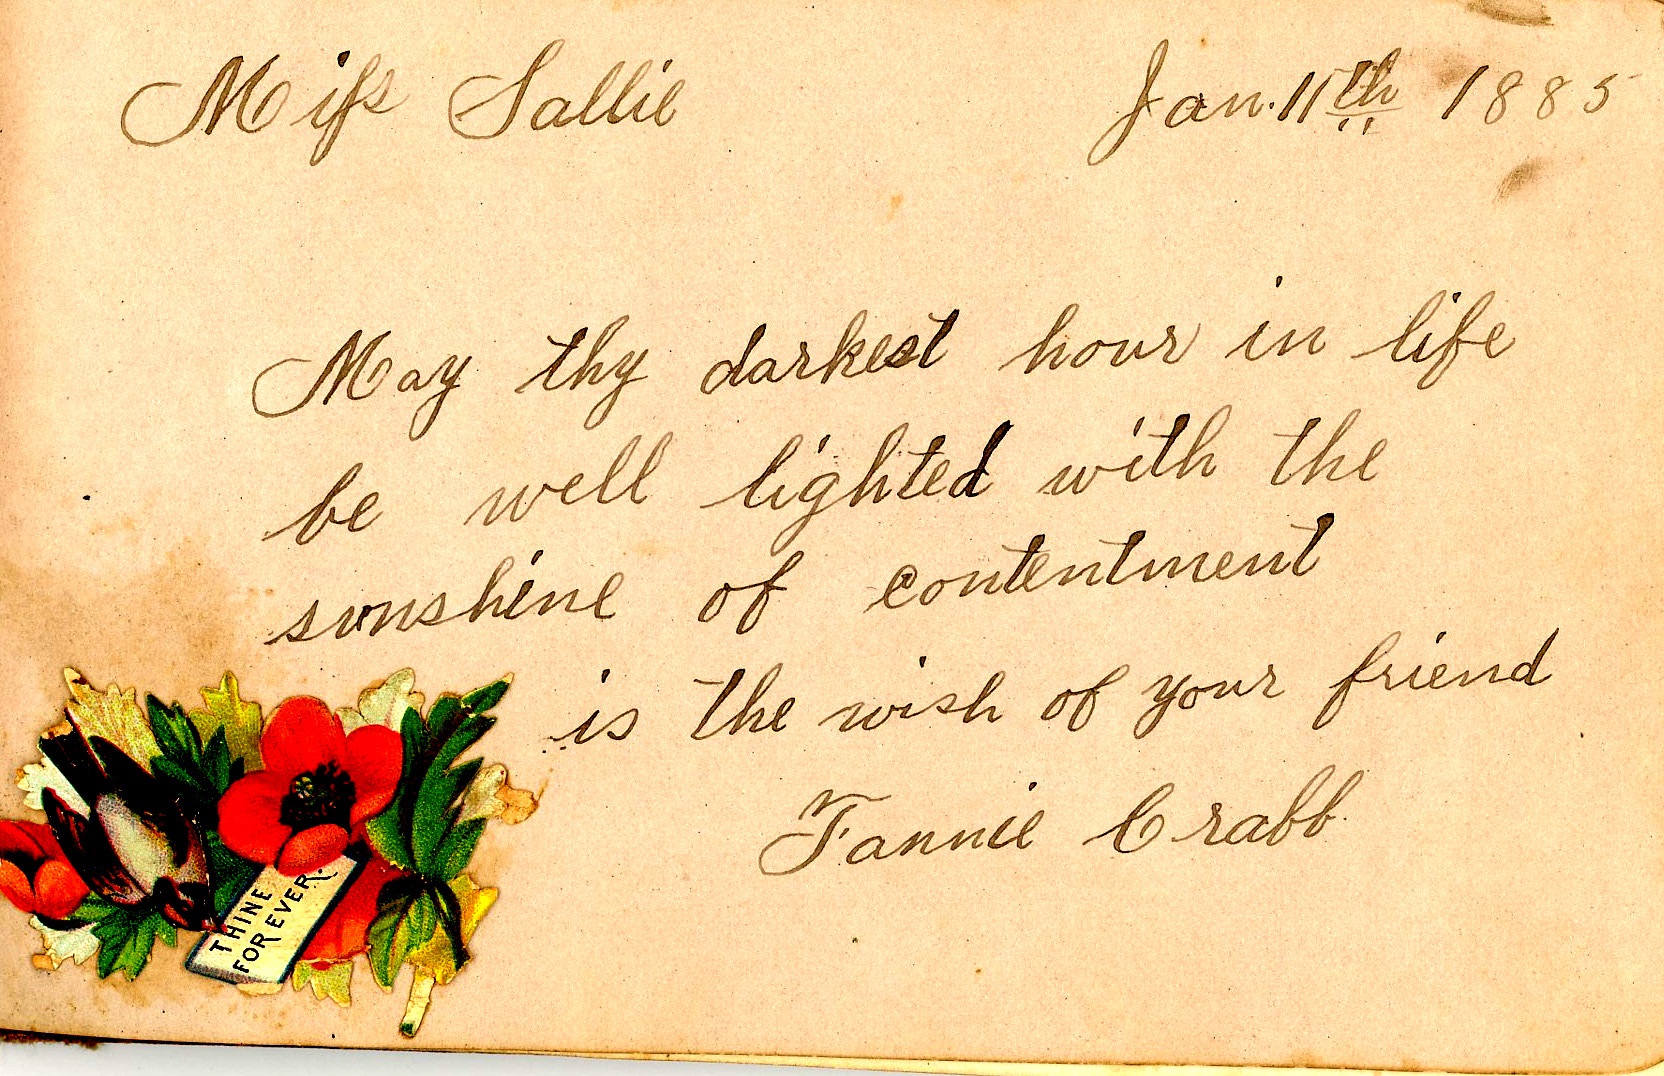 Miſs Sallie Jan. 11th 1885
May thy darkest hour in life
be well lighted with the
sunshine of contentment
is the wish of your friend
Fannie Crabb.
THINE
FOREVER.